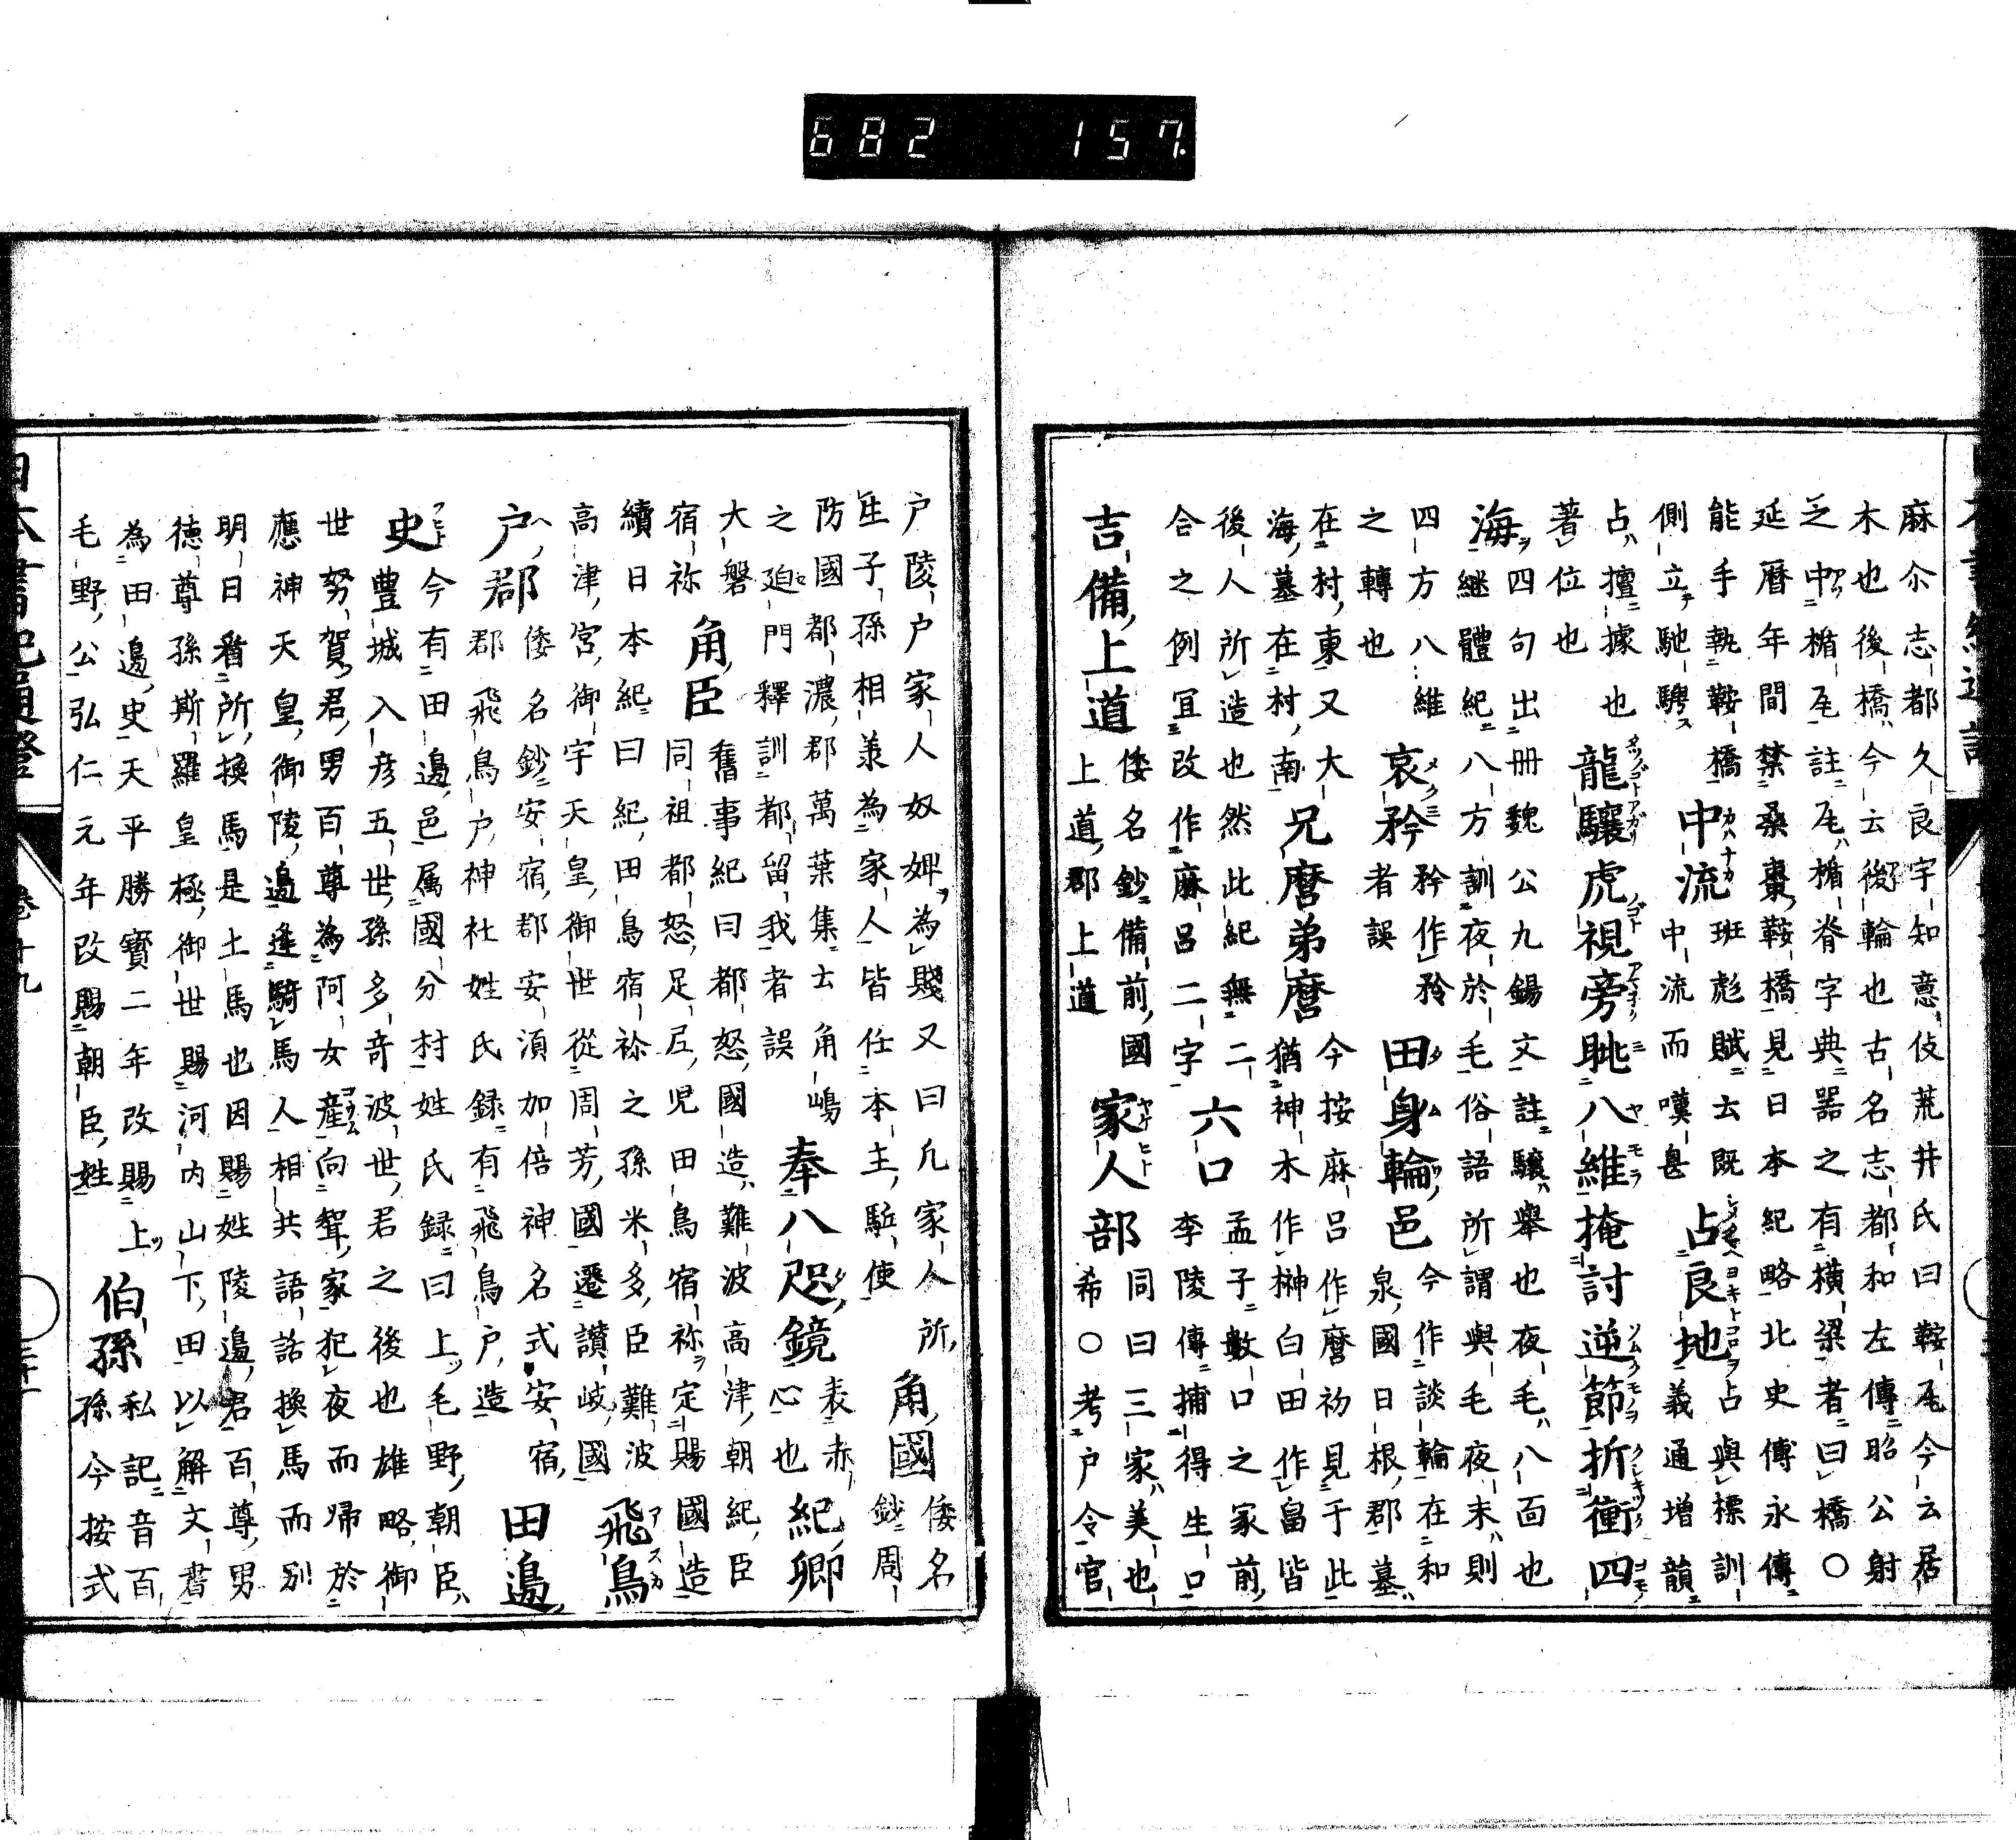 682 157.
麻尒志都久良字知意伎荒井氏曰鞍𡱈今云居
木也後橋今云後輪也古名志都和左傳昭公射
之中楯𡱈註𡱈楯脊字典器之有横梁者曰橋〇
延暦年間禁桑棗鞍橋見日本紀略北史傅永傳
能手執鞍橋 中流 班彪賦云既 占良地 占與標訓
側立馳騁 中流而嘆息 義通増韻
占擅據也 龍驤虎視旁眺八維掩討逆節折衝四
著位也
海 四句出册魏公九錫文註驤舉也夜毛八面也
継體紀八方訓夜於毛俗語所謂與毛夜末則
四方八維 哀矜 矜作矝 田身輪邑 今作談輪在和
之轉也 者誤 泉國日根郡墓
在村東又大 兄麿弟麿 今按麻呂作麿初見于此
海墓在村南 猶神木作榊白田作畠皆
後人所造也然此紀無二 六口 孟子數口之家前
合之例宜改作麻呂二字 李陵傳捕得生口
吉備上道 倭名鈔備前國 家人部 同曰三家美也
上道郡上道 希〇考户令官
户陵户家人奴婢為賤又曰凡家人所 角國 倭名
生子孫相羕為家人皆任本主駈使 鈔周
防國都濃郡萬葉集云角嶋 奉八咫鏡 表赤 紀卿
之廸門釋訓都留我者誤 心也
大磐 角臣 舊事紀曰都怒國造難波高津朝紀臣
宿祢 同祖都怒足尼児田鳥宿祢定賜國造
續日本紀曰紀田鳥宿祢之孫米多臣難波 飛鳥
高津宮御宇天皇御世從周芳國遷讃岐國
户郡 倭名鈔安宿郡安湏加倍神名式安宿 田邊
郡飛鳥户神社姓氏録有飛鳥户造
史 今有田邊邑属國分村姓氏録曰上毛野朝臣
豊城入彦五世孫多奇波世君之後也雄略御
世努賀君男百尊為阿女産向聟家犯夜而帰於
應神天皇御陵邊逢騎馬人相共語話換馬而別
明日看所換馬是土馬也因賜姓陵邊君百尊男
徳尊孫斯羅皇極御世賜河内山下田以解文書
為田邊史天平勝寳二年改賜上 伯孫 私記音百
毛野公弘仁元年改賜朝臣姓 孫今按式